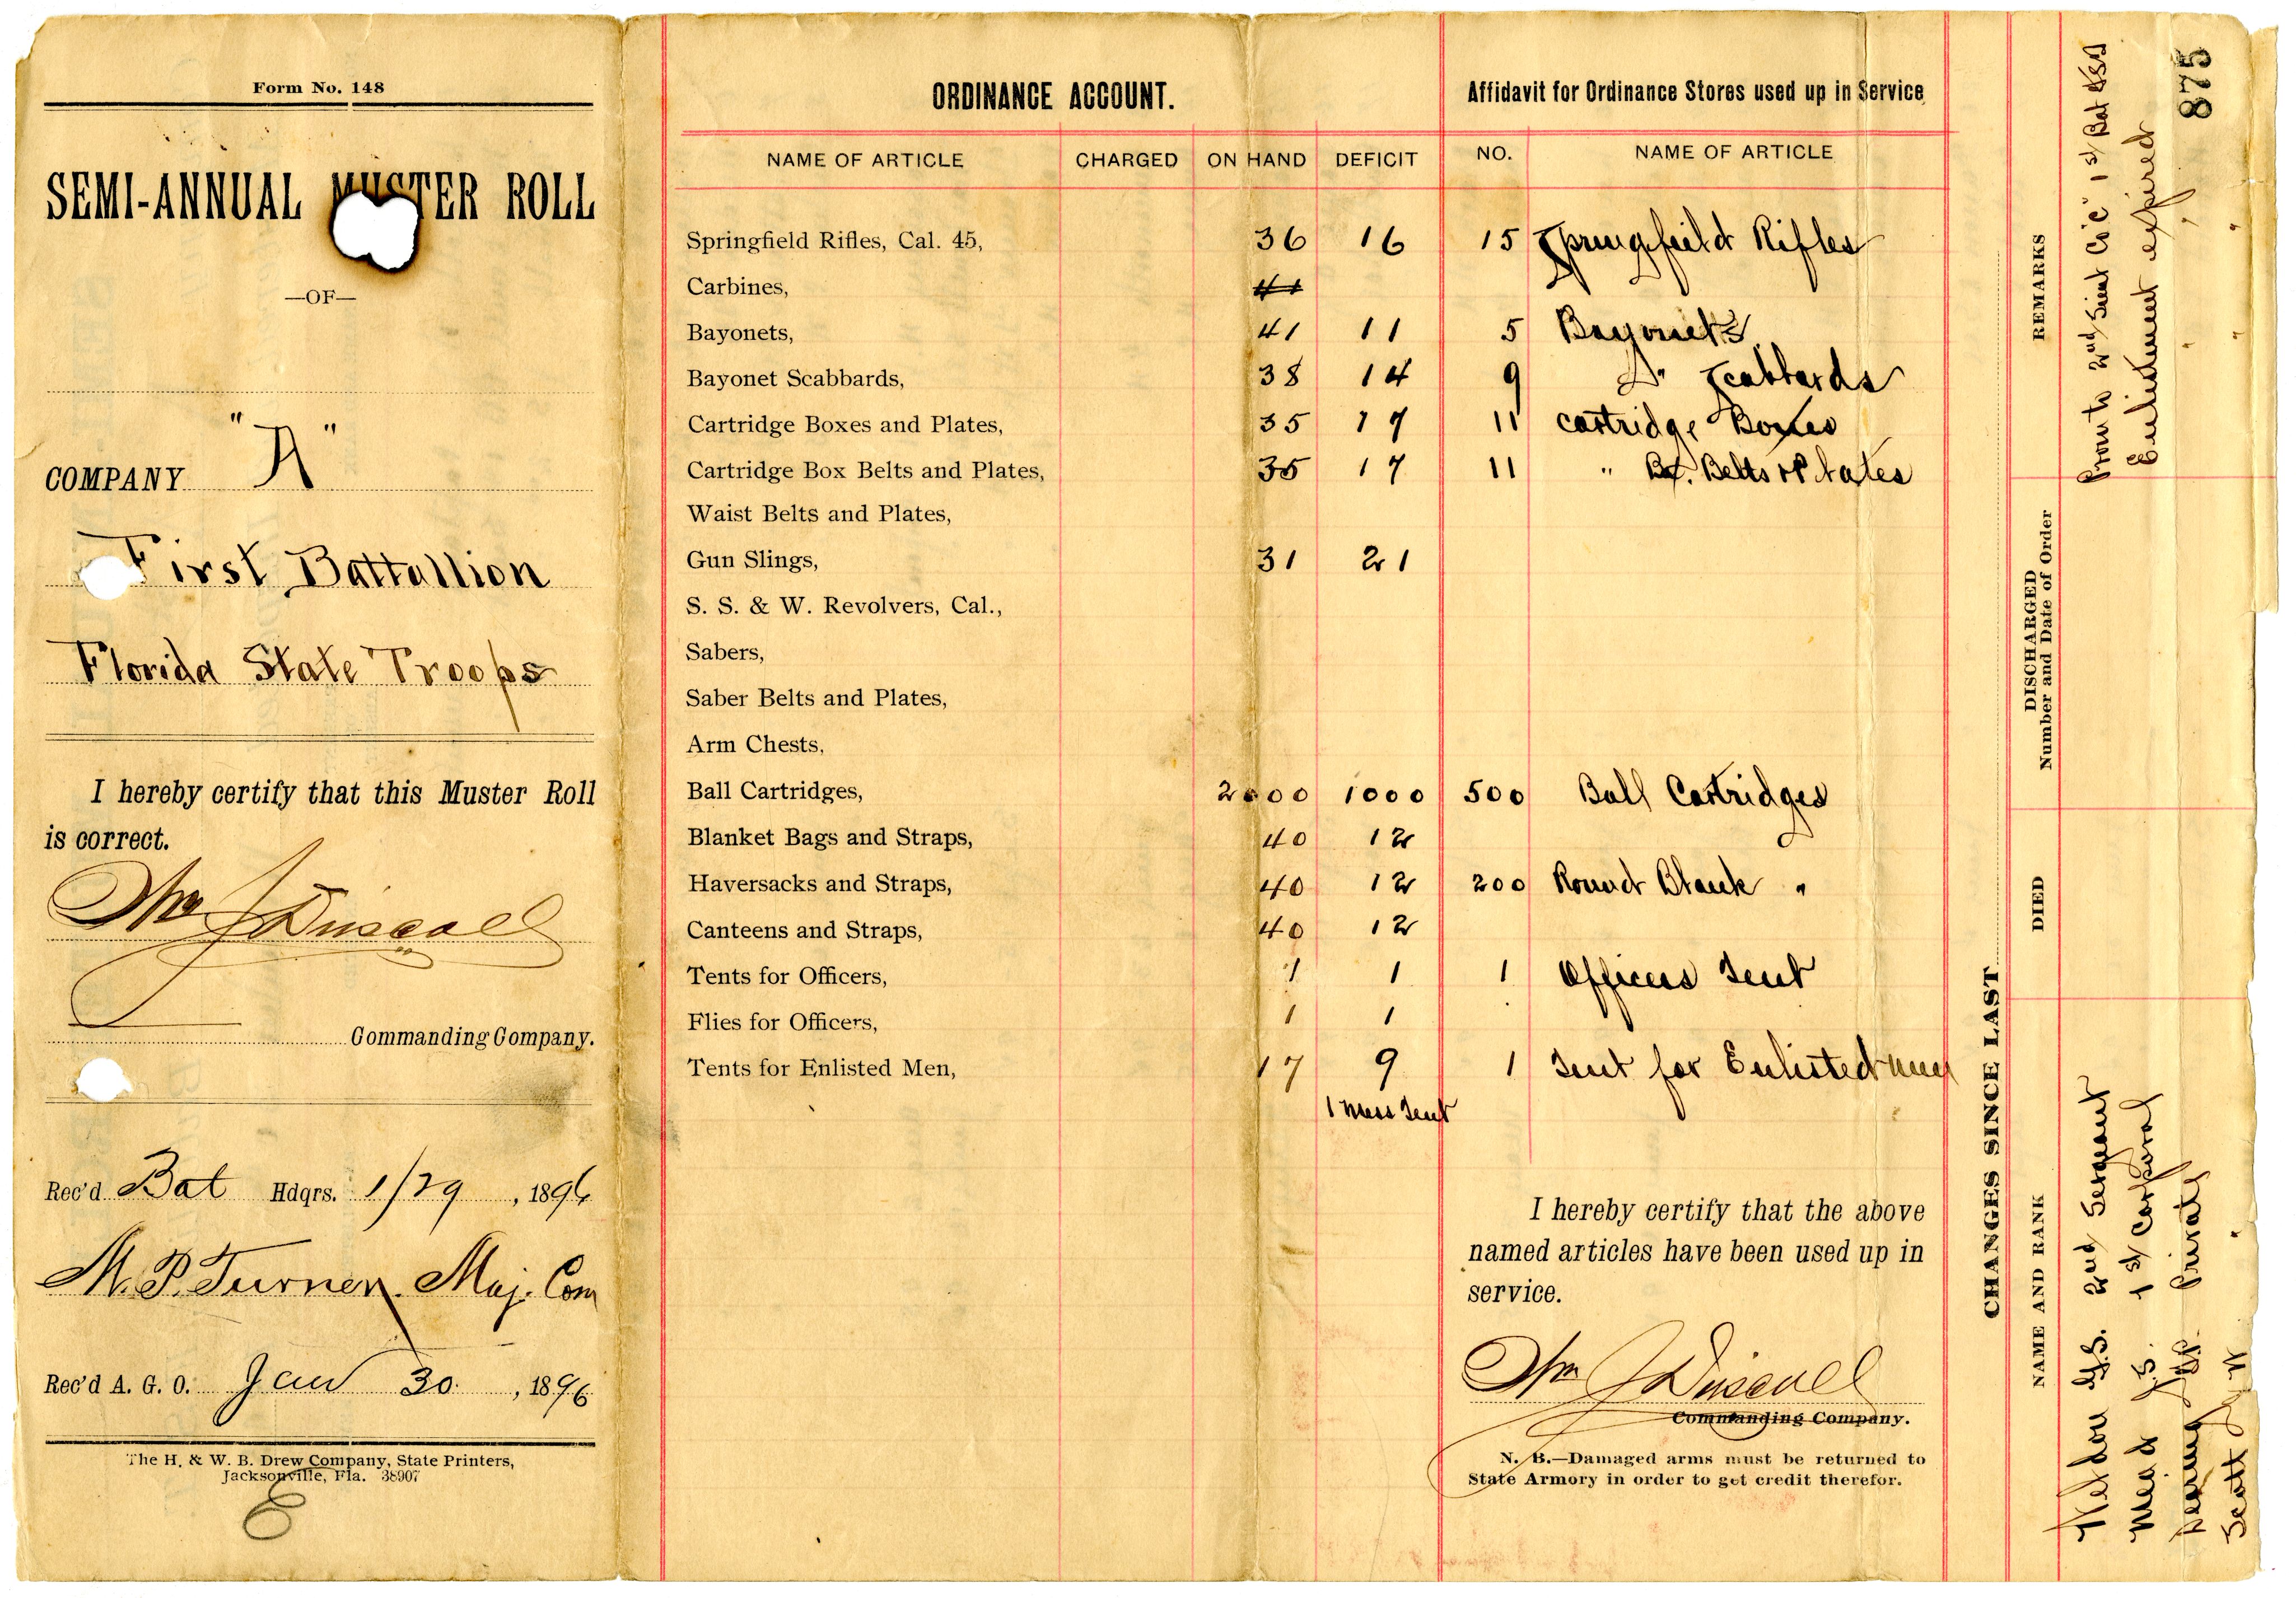 Form No. 148
SEMI-ANNUAL MUSTER ROLL
—OF—
COMPANY "A"
First Battallion
Florida State Troops
I hereby certify that this Muster Roll
is correct.
Wm J Driscoll
Commanding Company.
Rec'd Bat Hdqrs. 1/29, 1896
Turner. Maj. Com
Rec'd A. G. O. Jan 30, 1896
The H. & W. B. Drew Company, State Printers,
Jacksonville, Fla. 38907
ORDINANCE ACCOUNT.
NAME OF ARTICLE CHARGED ON HAND DEFICIT
Springfield Rifles, Cal. 45, 36 16
Carbines,
Bayonets, 41 11
Bayonet Scabbards, 38 14
Cartridge Boxes and Plates, 35 17
Cartridge Box Belts and Plates, 35 17
Waist Belts and Plates,
Gun Slings, 31 21
S. S. & W. Revolvers, Cal.,
Sabers,
Saber Belts and Plates,
Arm Chests,
Ball Cartridges, 2000 1000
Blanket Bags and Straps, 40 12
Haversacks and Straps, 40 12
Canteens and Straps, 40 12
Tents for Officers, 1 1
Flies for Officers, 1 1
Tents for Enlisted Men, 17 9
1 Mess Tent
Affidavit for Ordinance Stores used up in Service
NO. NAME OF ARTICLE
15 Springfeild Rifles
5 Bayonets
9 " Scabbards
11 Cartridge Boxes
11 " Bx. Belts & Plates
500 Ball Cartridges
200 Round Blank "
1 Officers Tent
1 Tent for Enlisted men
I hereby certify that the above
named articles have been used up in
service.
Wm J Driscoll
Commanding Company.
N. B.—Damaged arms must be returned to
State Armory in order to get credit therefor.
CHANGES SINCE LAST
NAME AND RANK DIED DISCHARGED Number and Date of Order REMARKS
2nd Sergeant Prom to 2nd Lieut Co "C" 1st Bat FST
Mead J.S. 1st Corporal Enlistment expired
Private " "
Scott " " "
875